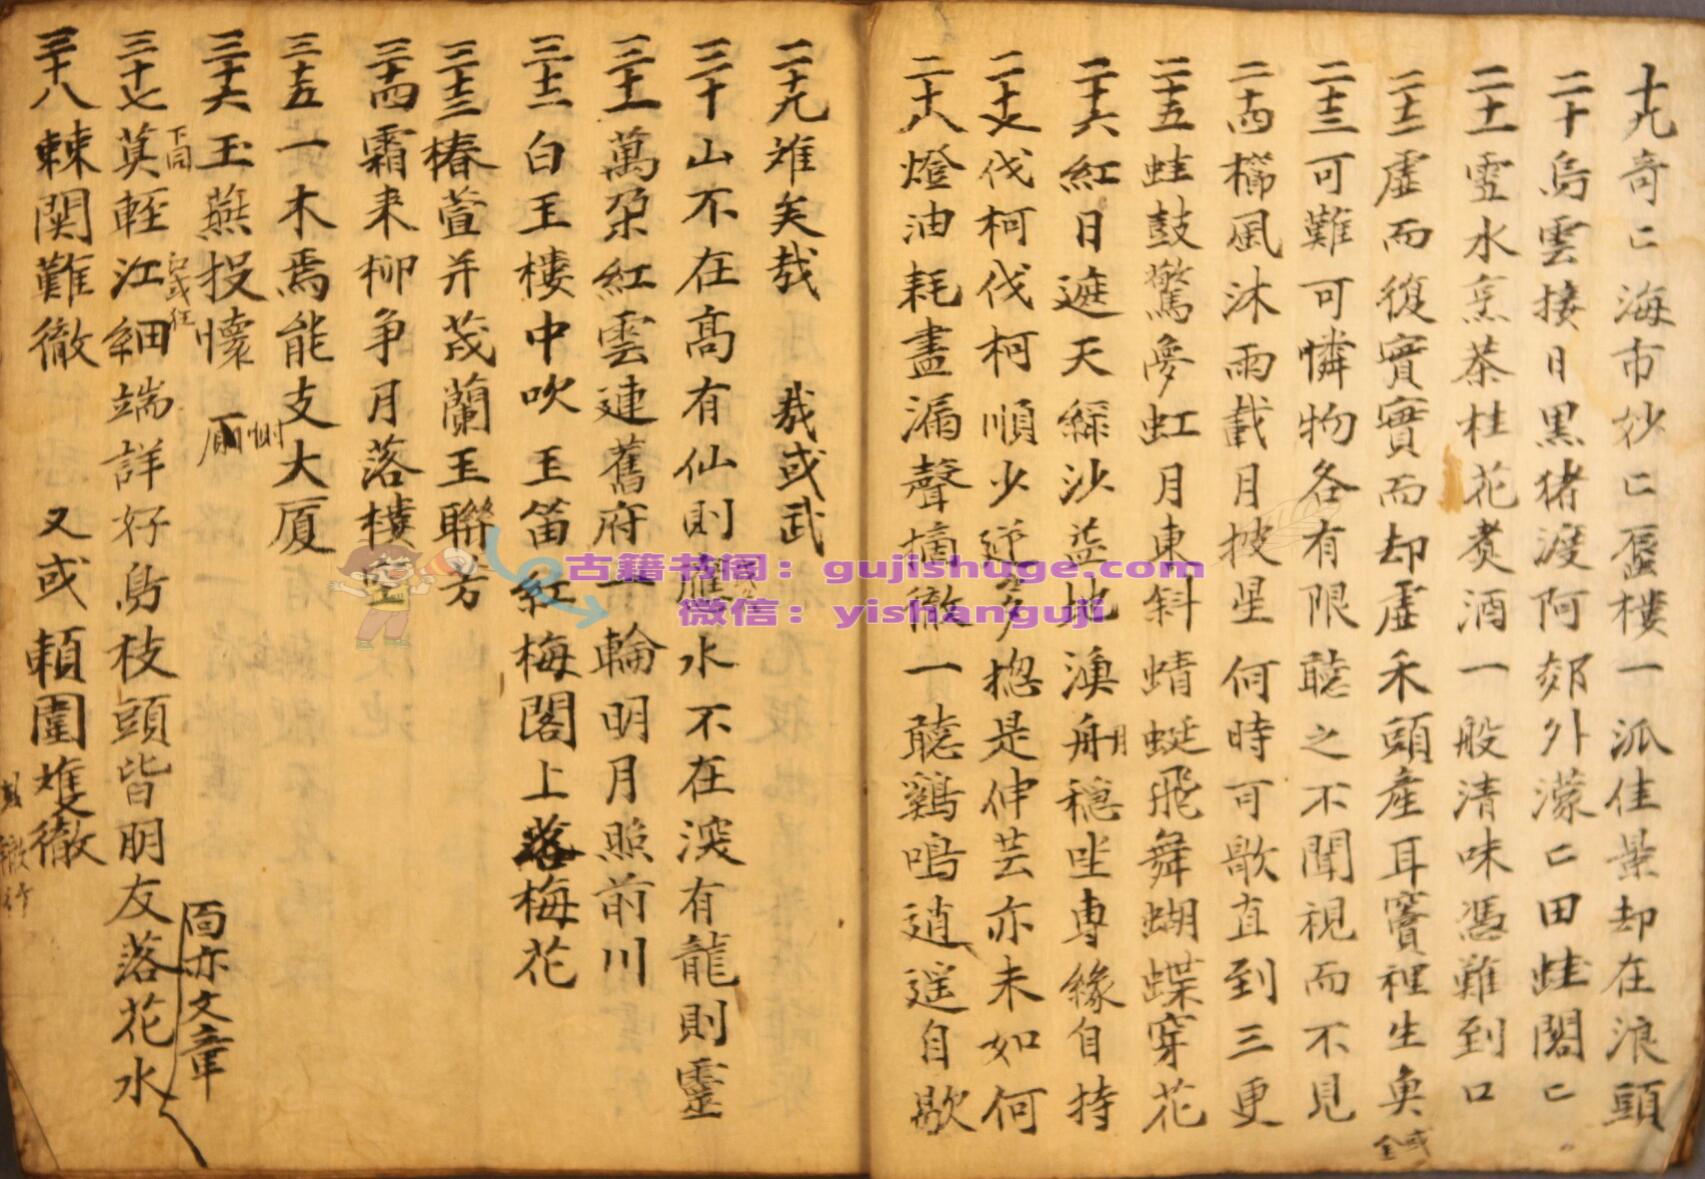 十九奇〻海市妙〻蜃樓一派佳景却在浪頭
二十烏雲接日黑猪渡阿郊外濛〻田蛙閣〻
二十一雪水烹茶桂花煑酒一般清味憑難到口
二十二虛而復實實而却虛禾頭產耳竇裡生魚
或全
二十三可難可憐物各有限聽之不聞視而不見
二十四櫛風沐雨載月披星何時可歇直到三更
二十五蛙鼓驚夢虹月東斜蜻蜓飛舞蝴蝶穿花
二十六紅日遮天綠沙盖地漁舟穩坐專緣自持
二十七伐柯伐柯順少逆多揔是伸芸亦未如何
二十八燈油耗盡漏聲摘徹一聽鷄鳴逍遥自歇
二十九难矣哉 哉或武
三十山不在高有仙則應水不在深有龍則靈
三十一萬朶紅雲連舊府一輪明月照前川
三十二白玉樓中吹玉笛紅梅閣上落梅花
三十三椿萱并茂蘭玉聯芳
三十四霜来柳争月落樓空
三十五一木焉能支大厦
三十六玉燕投懷
下同
面亦文章
三十七莫輕江細端詳好鳥枝頭皆朋友落花水
三十八棘関難徹 又或頼圍难徹
古籍书阁：gujishuge.com
微信：yishanguji